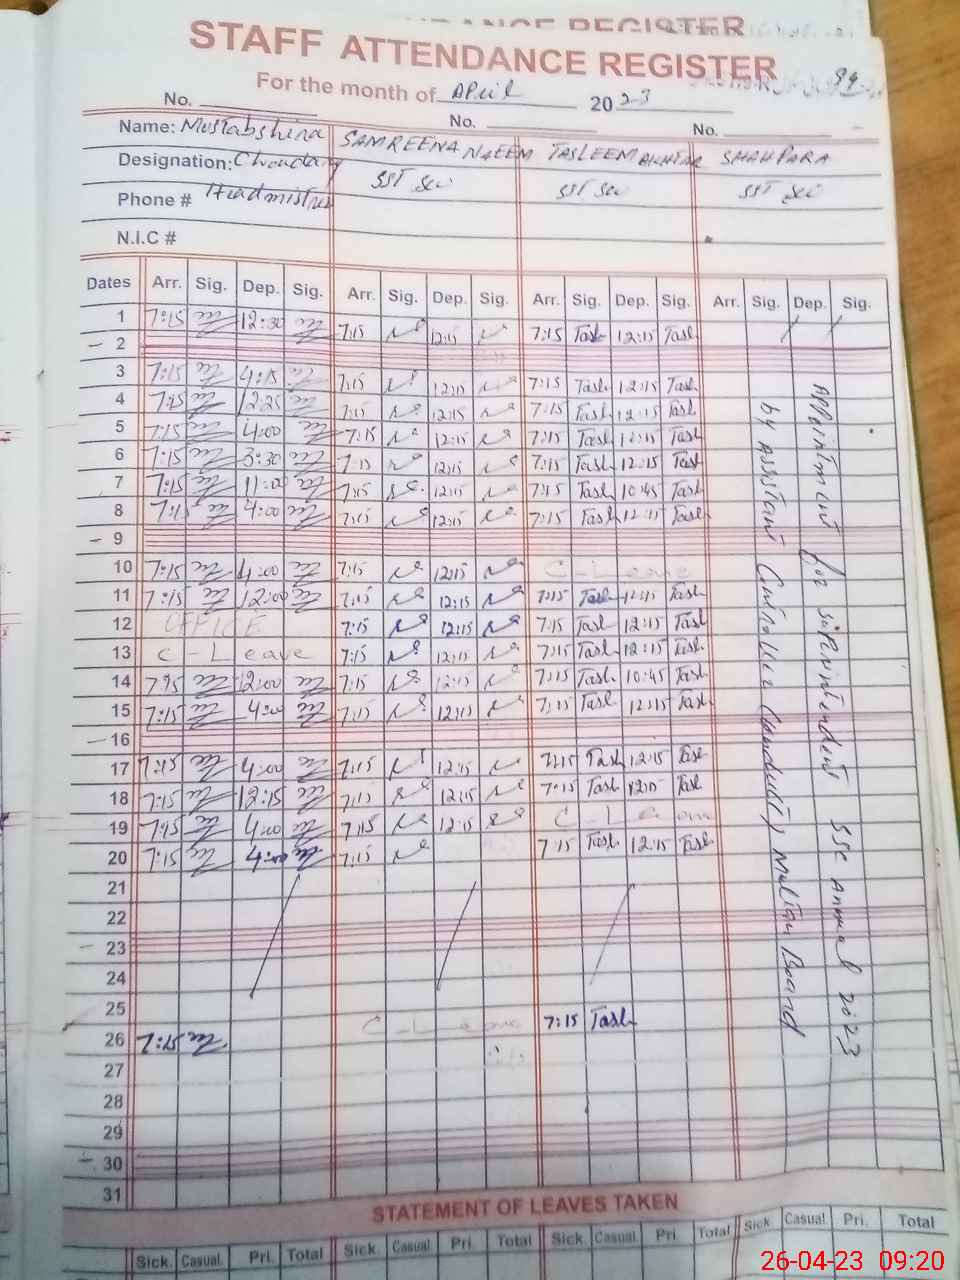 STAFF ATTENDANCE REGISTER
For the month of April 2023
89
No. No. No.
Name: Mustabshira SAMREENA NAEEM TASLEEM AKHTAR SHAH PARA
Designation: Choudary SST Sci SST Sci SST Sci
Phone # Headmistress
N.I.C #
Dates Arr. Sig. Dep. Sig. Arr. Sig. Dep. Sig. Arr. Sig. Dep. Sig. Arr. Sig. Dep. Sig.
1 7:15 12:30 7:15 12:15 7:15 Tasl 12:15 Tasl
2
3 7:15 4:15 7:15 12:15 7:15 Tasl 12:15 Tasl
4 7:15 12:25 7:15 12:15 7:15 Tasl 12:15 Tasl
5 7:15 4:00 7:15 12:15 7:15 Tasl 12:15 Tasl
6 7:15 3:30 7:15 12:15 7:15 Tasl 12:15 Tasl
7 7:15 11:00 7:15 12:15 7:15 Tasl 10:45 Tasl
8 7:15 4:00 7:15 12:15 7:15 Tasl 12:15 Tasl
9
10 7:15 4:00 7:15 12:15 C-Leave
11 7:15 12:00 7:15 12:15 7:15 Tasl 12:15 Tasl
12 OFFICE 7:15 12:15 7:15 Tasl 12:15 Tasl
13 C-Leave 7:15 12:15 7:15 Tasl 12:15 Tasl
14 7:15 12:00 7:15 12:15 7:15 Tasl 10:45 Tasl
15 7:15 4:00 7:15 12:15 7:15 Tasl 12:15 Tasl
16
17 7:15 4:00 7:15 12:15 7:15 Tasl 12:15 Tasl
18 7:15 12:15 7:15 12:15 7:15 Tasl 12:15 Tasl
19 7:15 4:00 7:15 12:15 C-Leave
20 7:15 4:00 7:15 7:15 Tasl 12:15 Tasl
21
22
23
24
25
26 7:15 C-Leave 7:15 Tasl
27
28
29
30
31
Appointment for suprintendent SSC Annual 2023
by Assistant Controller Conduct, Multan Board
STATEMENT OF LEAVES TAKEN
Sick. Casual. Pri. Total Sick. Casual. Pri. Total Sick. Casual. Pri. Total Sick. Casual. Pri. Total
26-04-23 09:20